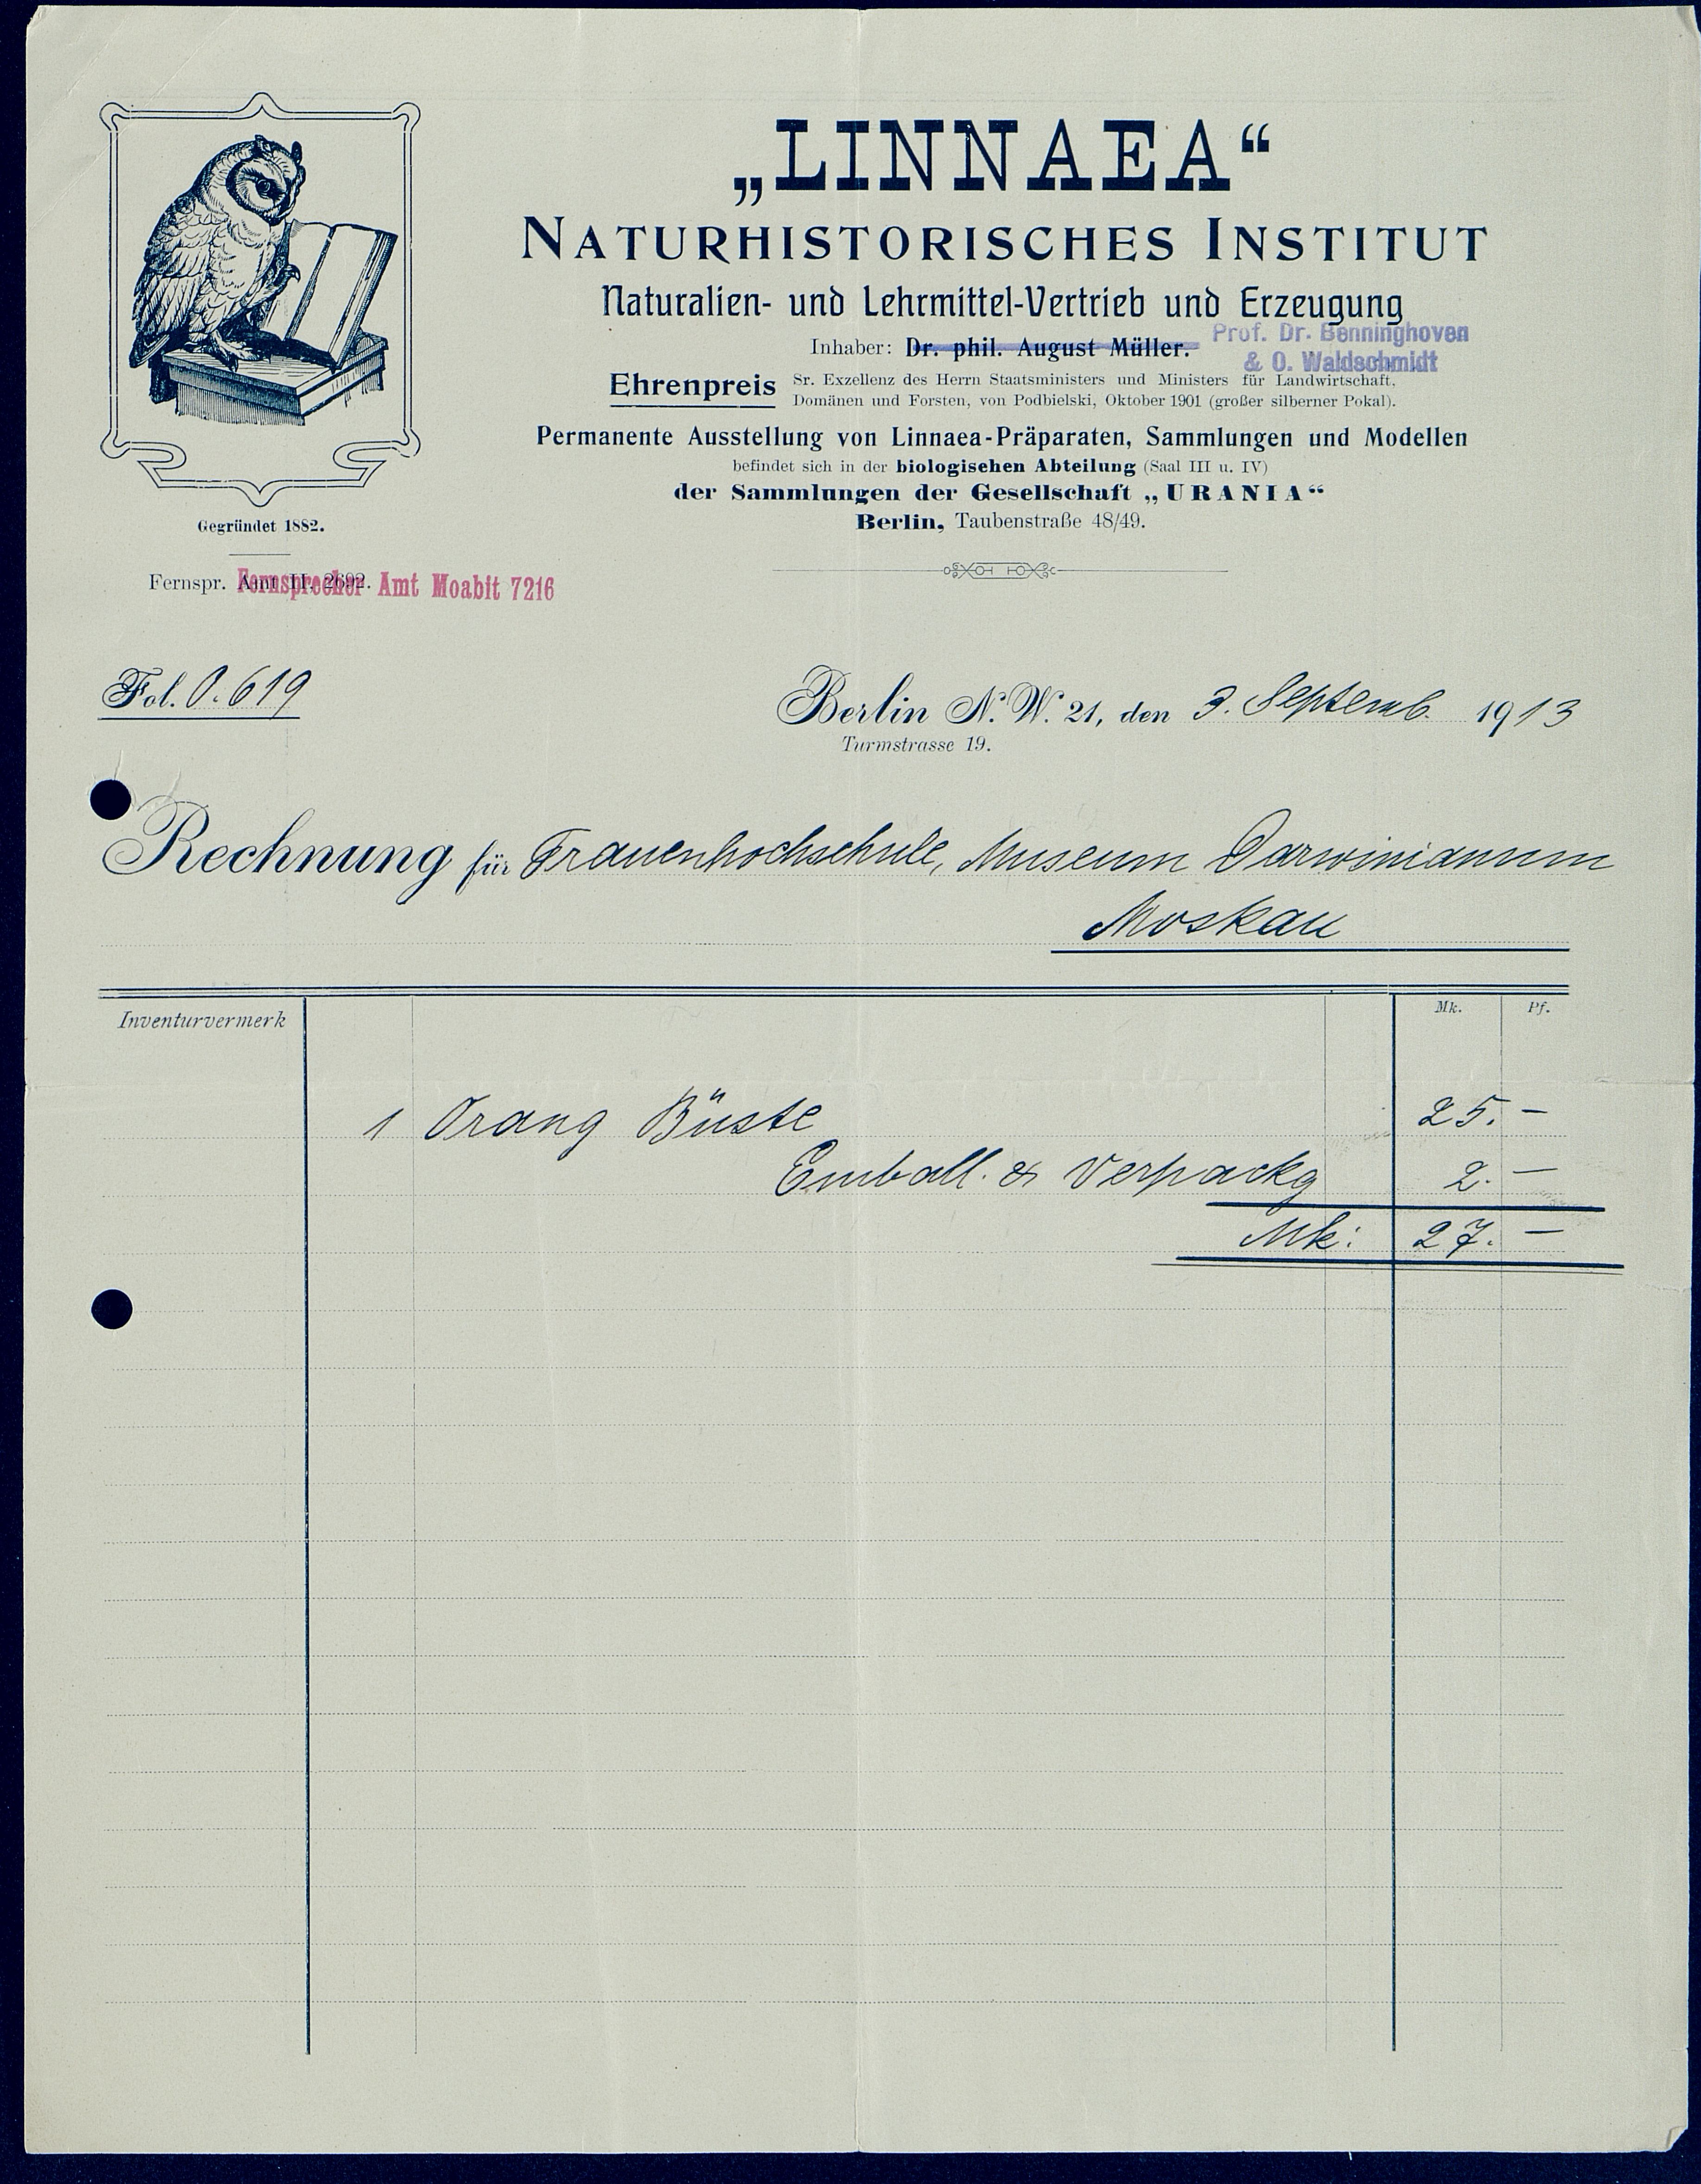 „LINNAEA“
NATURHISTORISCHES INSTITUT
Naturalien- und Lehrmittel-Vertrieb und Erzeugung
Inhaber: Dr. phil. August Müller. Prof. Dr. Benninghoven
& O. Waldschmidt
Ehrenpreis Sr. Exzellenz des Herrn Staatsministers und Ministers für Landwirtschaft,
Domänen und Forsten, von Podbielski, Oktober 1901 (großer silberner Pokal).
Permanente Ausstellung von Linnaea-Präparaten, Sammlungen und Modellen
befindet sich in der biologischen Abteilung (Saal III u. IV)
der Sammlungen der Gesellschaft „URANIA“
Berlin, Taubenstraße 48/49.
Gegründet 1882.
Fernspr. Amt II, 2692. Fernsprecher Amt Moabit 7216
Fol. O. 619
Berlin N. W. 21, den 3. Septemb. 1913
Turmstrasse 19.
Rechnung für Frauenhochschule, Museum Darwinianum
Moskau
Inventurvermerk Mk. Pf.
1 Orang Büste 25. –
Emball. & Verpackg 2. –
Mk: 27. –